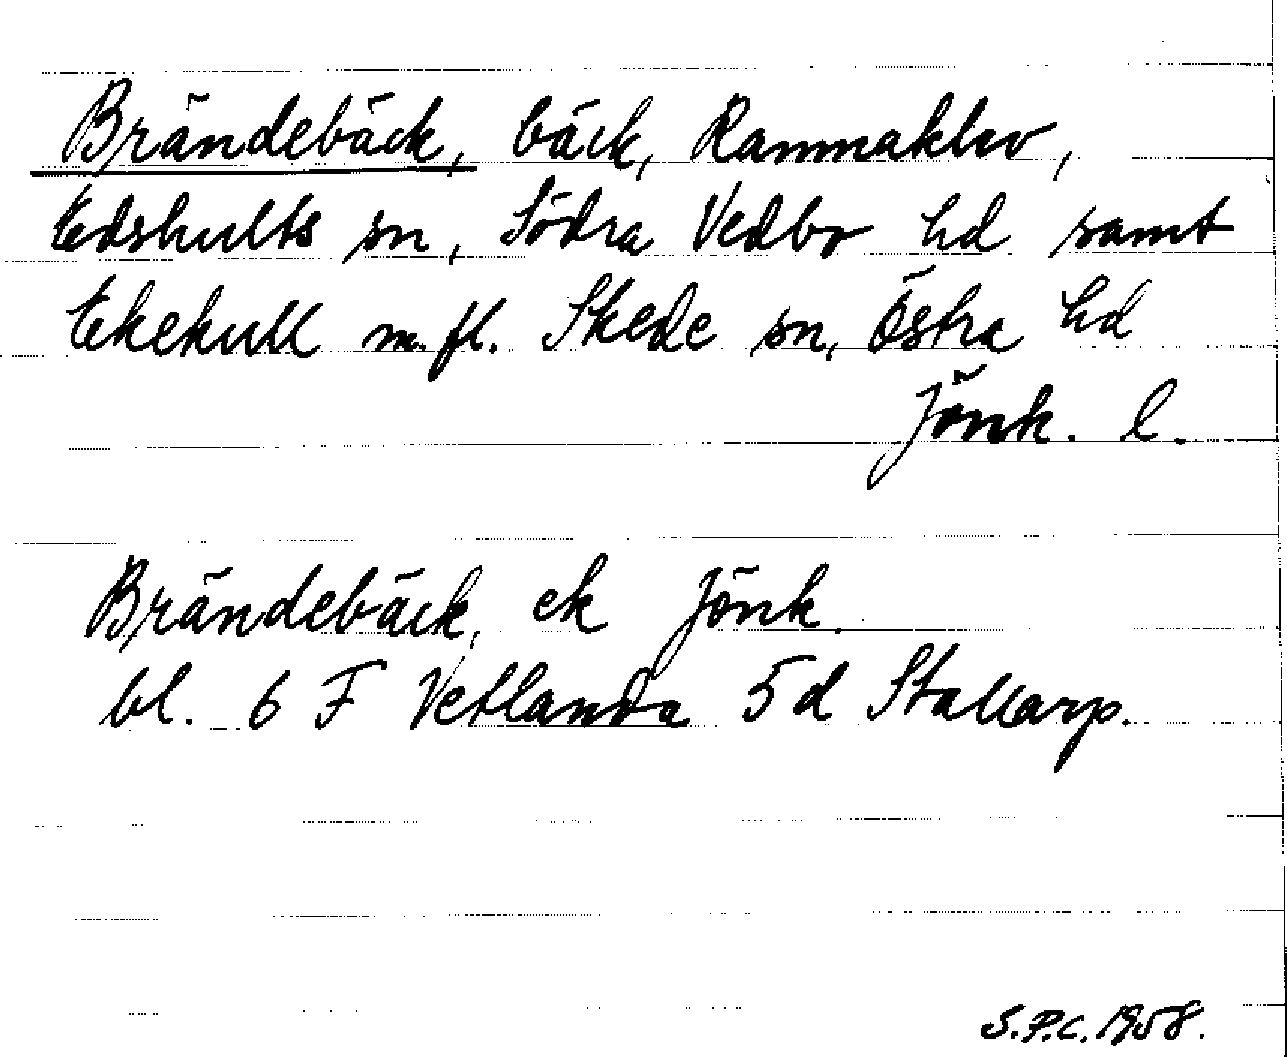 Brändebäck, bäck, Rammaklev,
Edshults sn, Södra Vedbo hd samt
Ekekull m.fl. Skede sn, Östra hd
Jönk. l.
Brändebäck, ek Jönk.
bl. 6 F Vetlanda 5d Stallarp.
S.P.C. 1958.